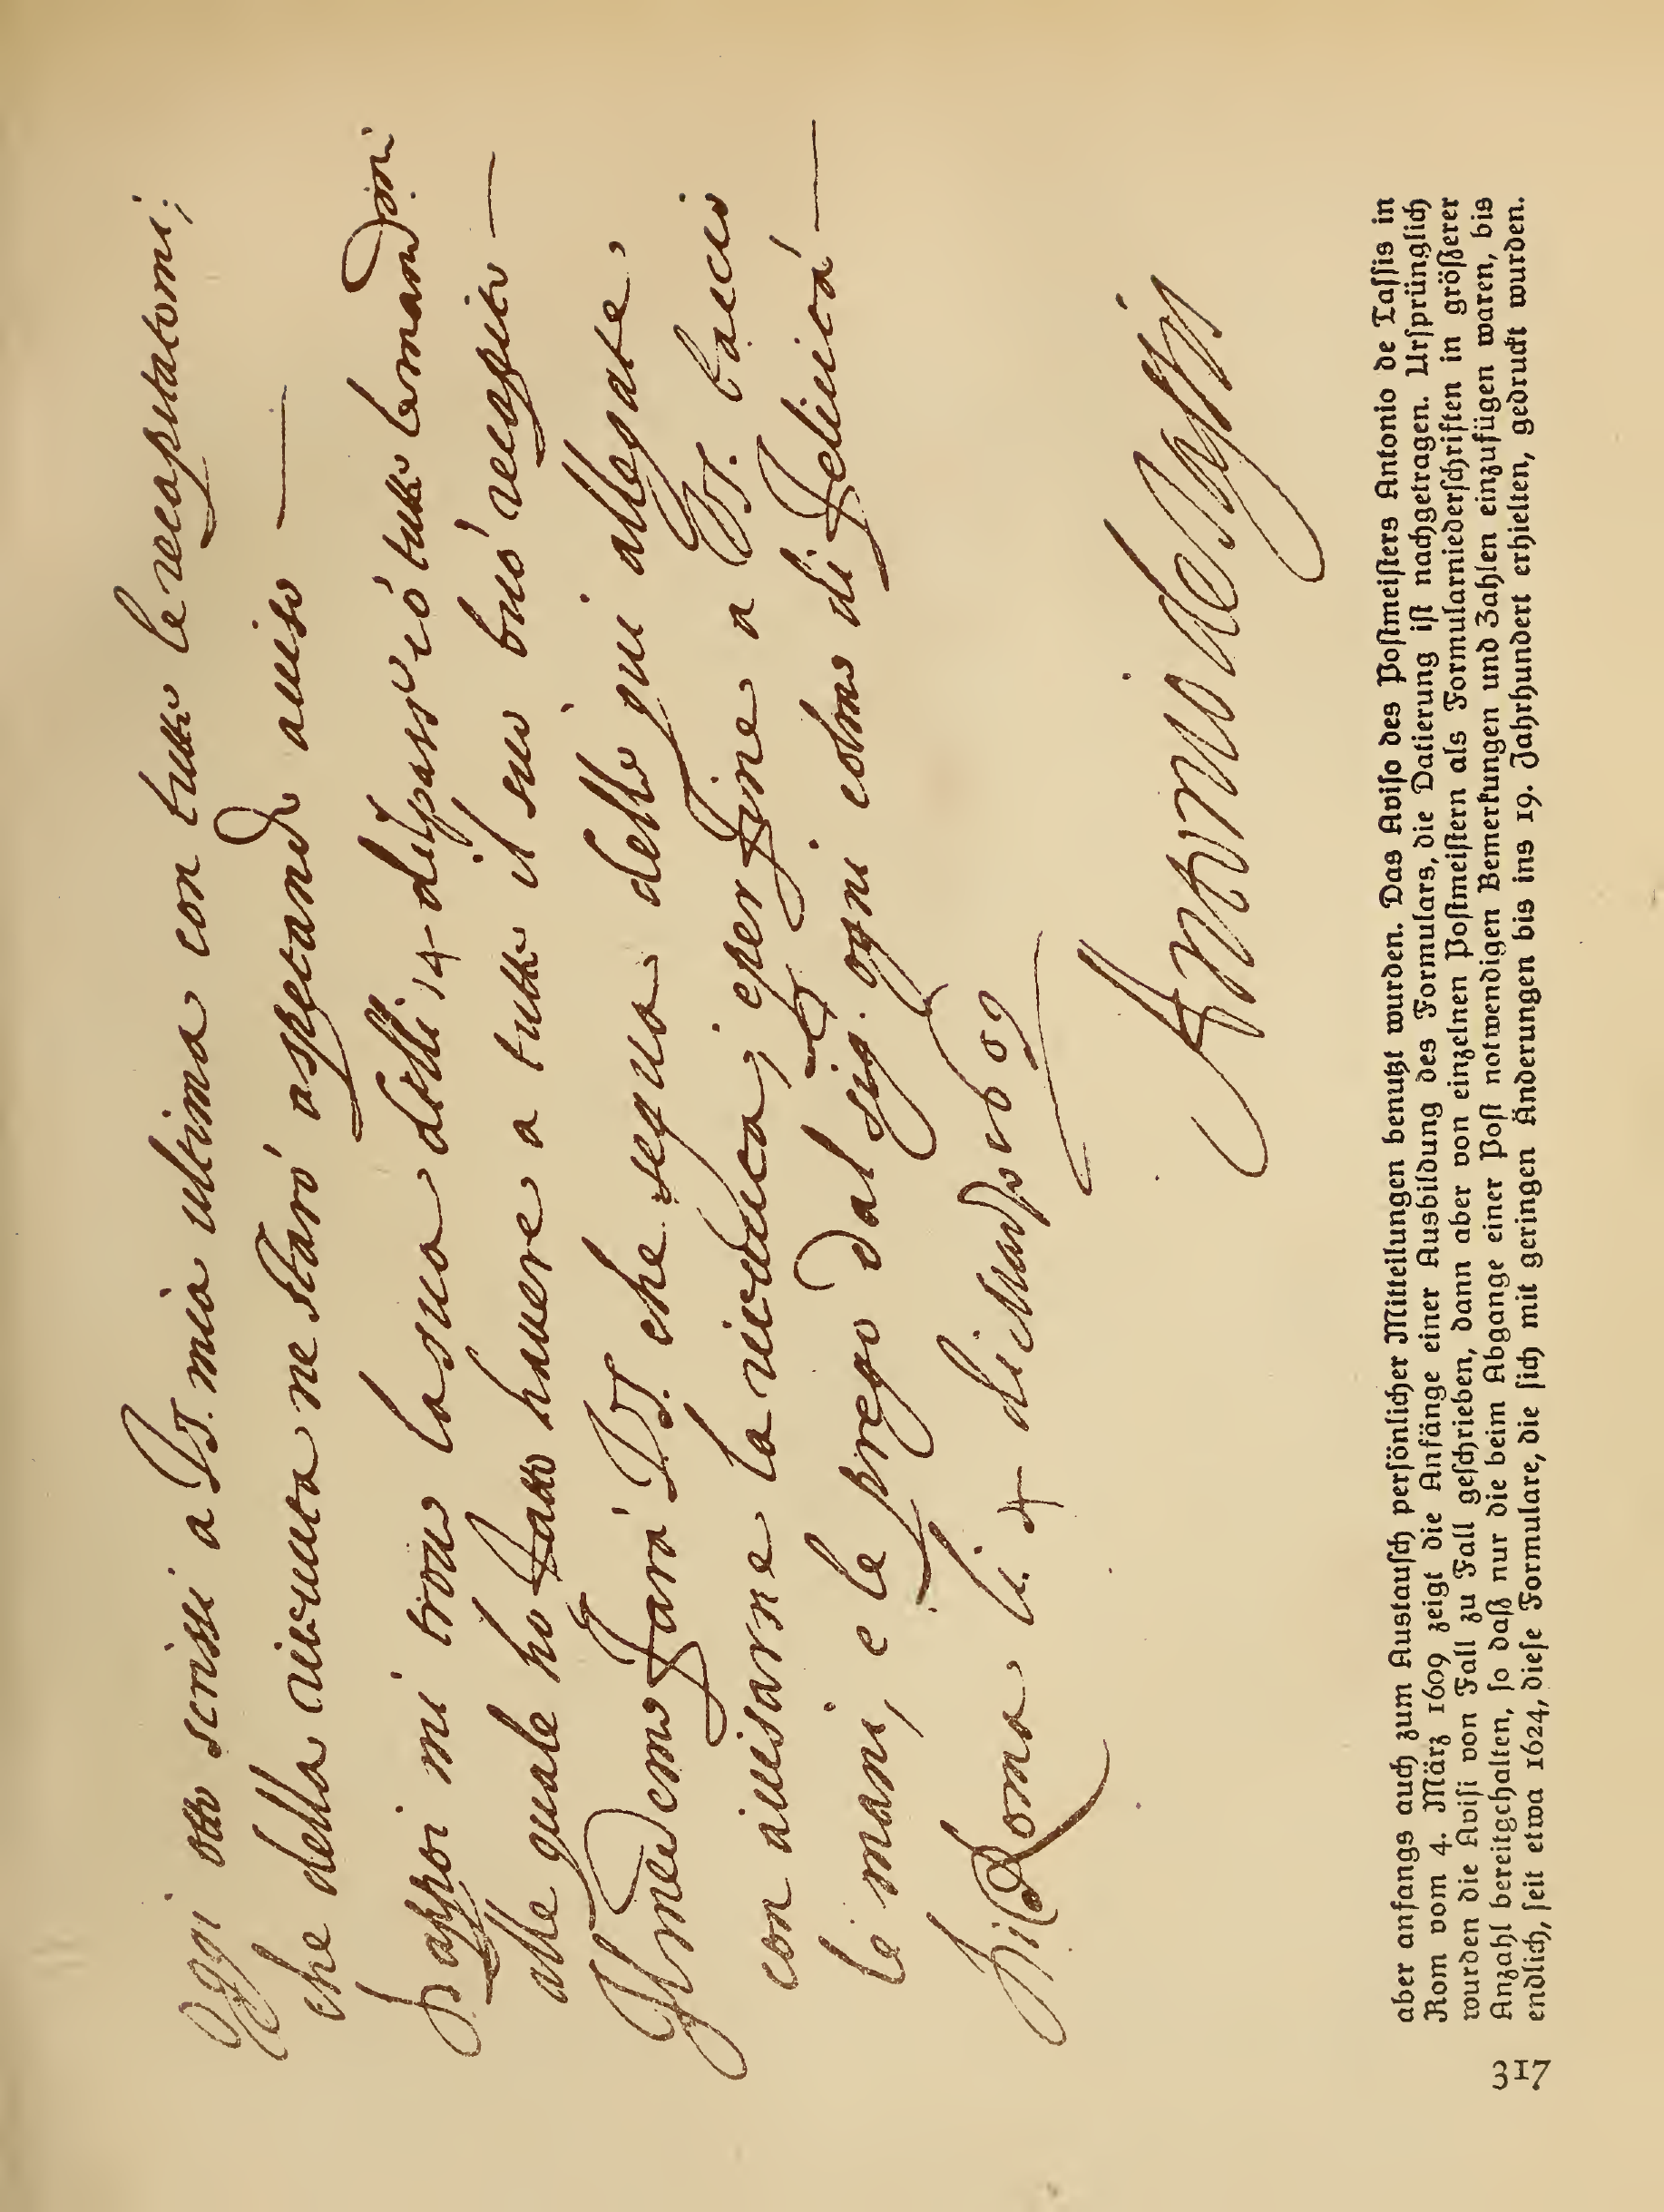 Oggi otto scrissi a VS. mia ultima con tutto le recapitatomi;
che della riceuuta ne starò aspetando auiso —
Dappoi mi trouo la sua delli 14 del passato è ò tutto
alle quale ho fatto hauere a tutto il suo buò recapito —
Il medemo farà VS. che seguo detto qui allegate
con auisarne la riceuuta; e per fine a VS. bacio
le mani, e le prego dal sig. ogni colmo di felicità —
Di Roma li 4 di Marzo 1609
Antonio de Tassis
aber anfangs auch zum Austausch persönlicher Mitteilungen benutzt wurden. Das Aviso des Postmeisters Antonio de Tassis in
Rom vom 4. März 1609 zeigt die Anfänge einer Ausbildung des Formulars, die Datierung ist nachgetragen. Ursprünglich
wurden die Avisi von Fall zu Fall geschrieben, dann aber von einzelnen Postmeistern als Formularniederschriften in größerer
Anzahl bereitgehalten, so daß nur die beim Abgange einer Post notwendigen Bemerkungen und Zahlen einzufügen waren, bis
endlich, seit etwa 1624, diese Formulare, die sich mit geringen Änderungen bis ins 19. Jahrhundert erhielten, gedruckt wurden.
317